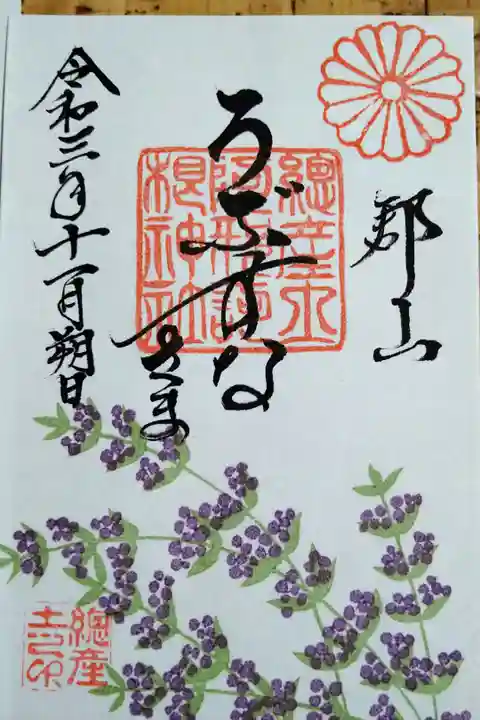 郡山
うぶすな
さま
總産土
阿邪訶
根神社
令和三年十一月朔日
總産
土印